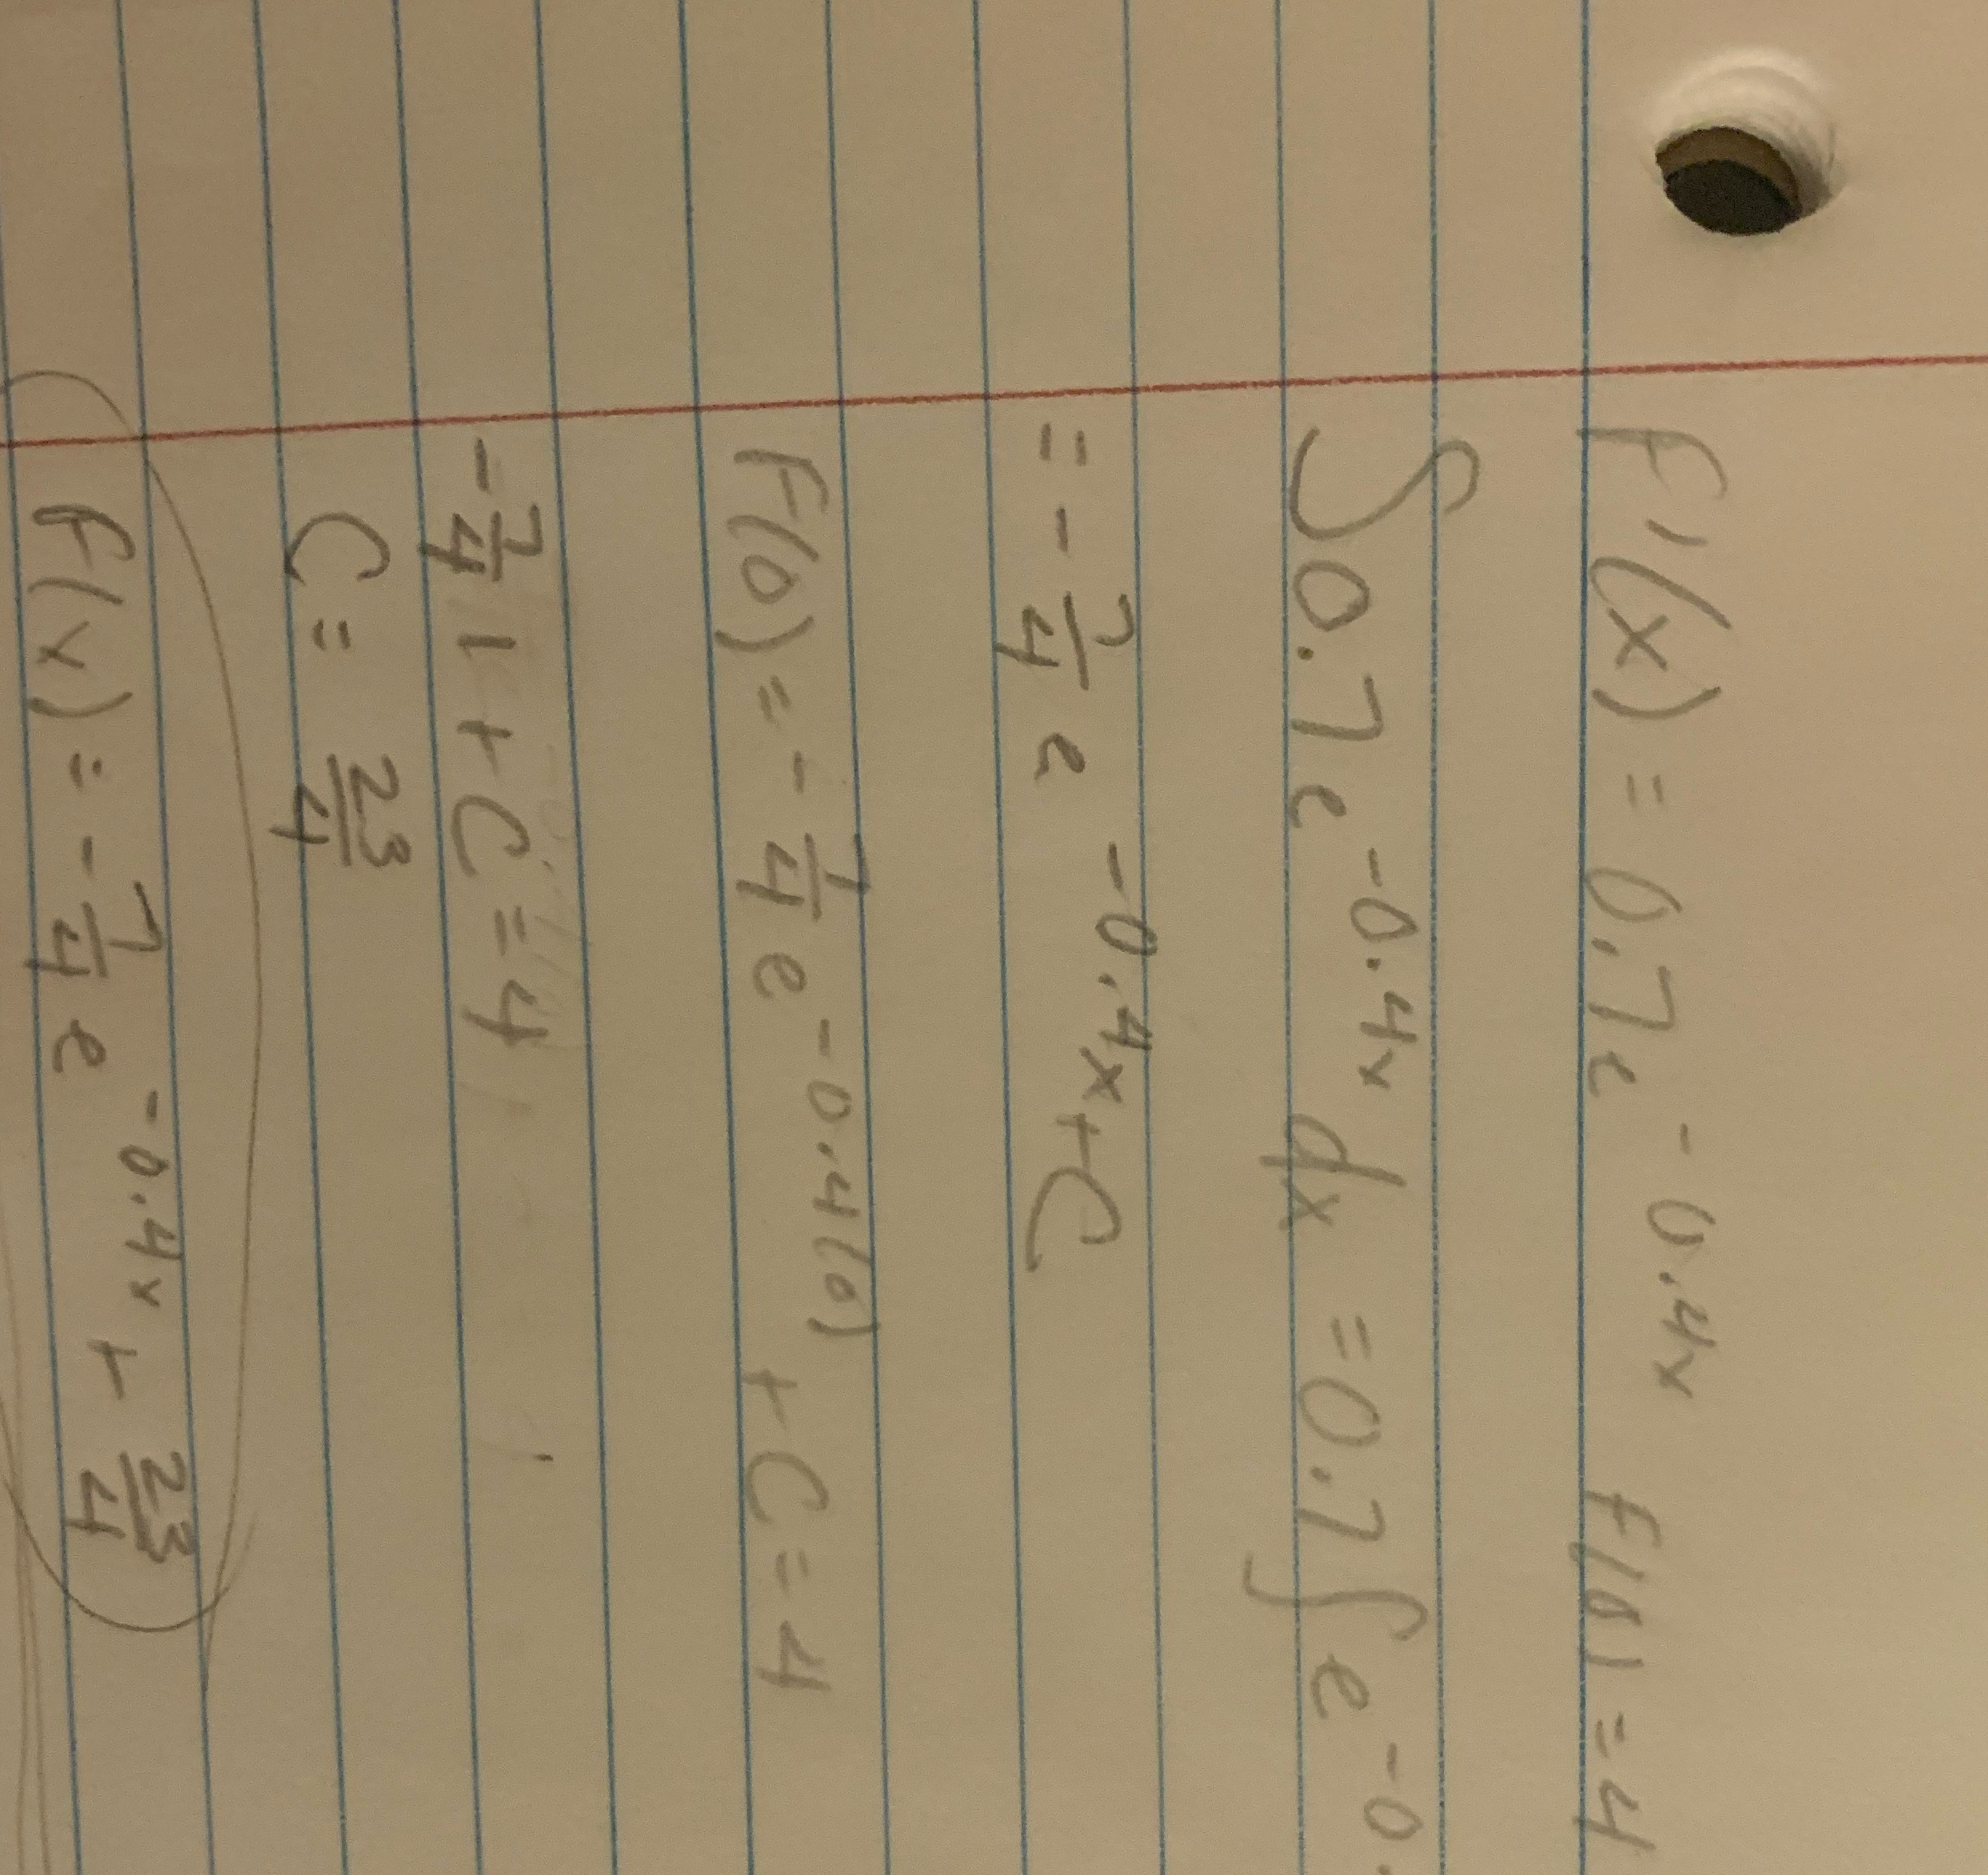 F'(x) = 0.7e^{-0.4x} F(0) = 4
∫0.7e^{-0.4x} dx = 0.7∫e^{-0.
= -7/4 e^{-0.4x} + C
F(0) = -7/4 e^{-0.4(0)} + C = 4
-7/4 1 + C = 4
C = 23/4
F(x) = -7/4 e^{-0.4x} + 23/4